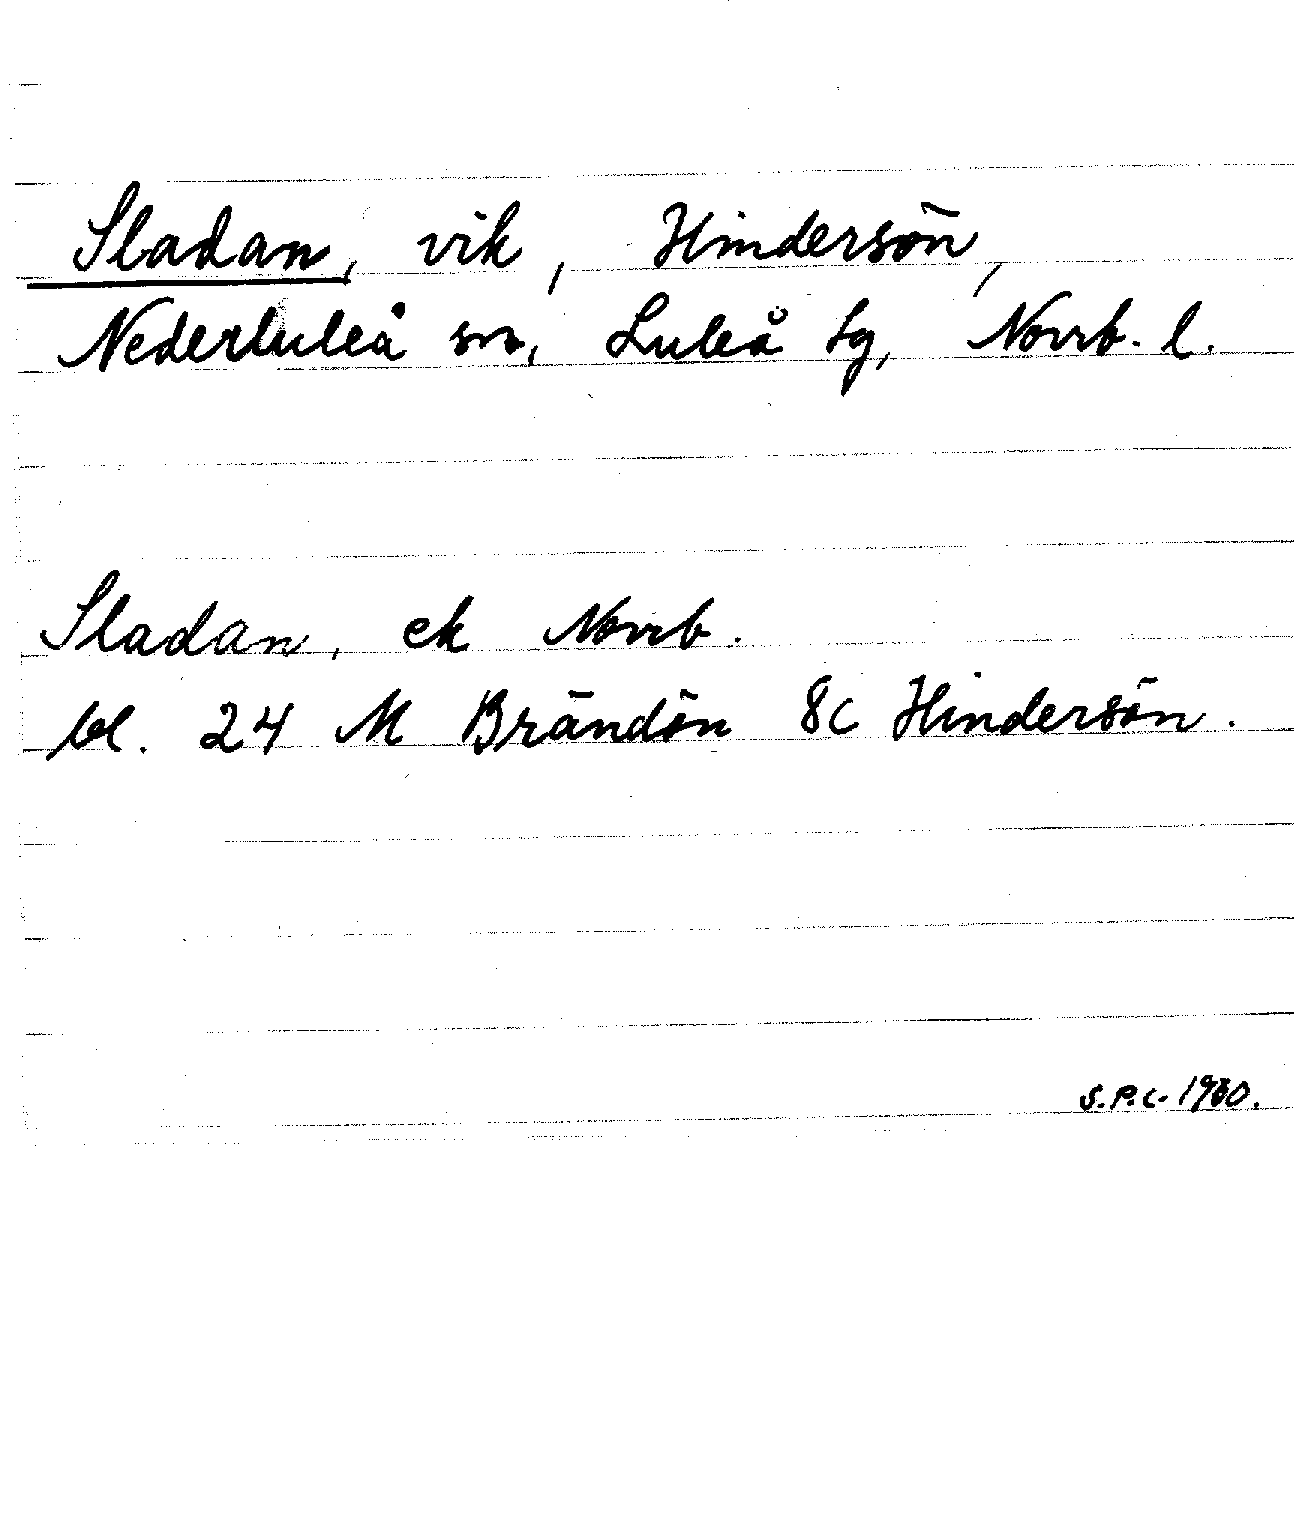 Sladan, vik, Hindersön,
Nederluleå sn, Luleå tg, Norrb. l.
Sladan, ek Norrb.
bl. 24 M Brändön 8c Hindersön.
S.P.C. 1930.